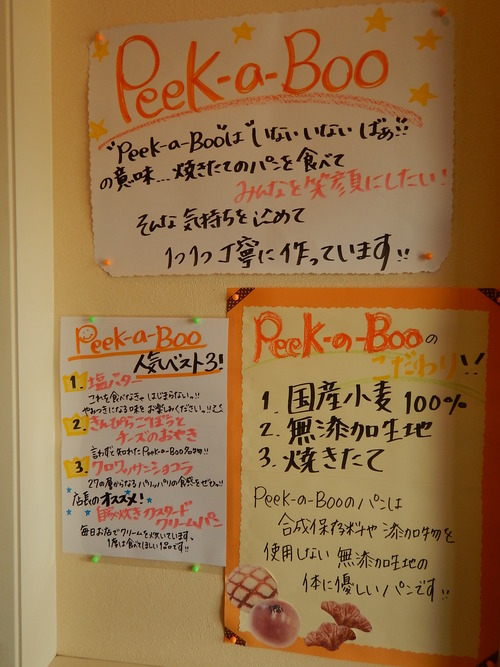 Peek-a-Boo
"Peek-a-Boo"は"いないいないばぁ"!!
の意味…焼きたてのパンを食べて
みんなを笑顔にしたい!
そんな気持ちを込めて
1つ1つ丁寧に作っています!!
Peek-a-Boo
人気ベスト3!
1. 塩バター
これを食べなきゃはじまらない。!!
やみつきになる味をお楽しみください。!!
2. きんぴらごぼうと
チーズのおやき
言わずと知れたPeek-a-Boo名物!!
3. クロワッサンショコラ
27の層からなるパリッパリの食感をぜひ。!!
店長のオススメ!
自家炊きカスタード
クリームパン
毎日お店でクリームを炊いています。
1度は食べてほしい1品です!!
Peek-a-Booの
こだわり!!
1. 国産小麦100%
2. 無添加生地
3. 焼きたて
Peek-a-Booのパンは
合成保存料や添加物を
使用しない無添加生地の
体に優しいパンです!!